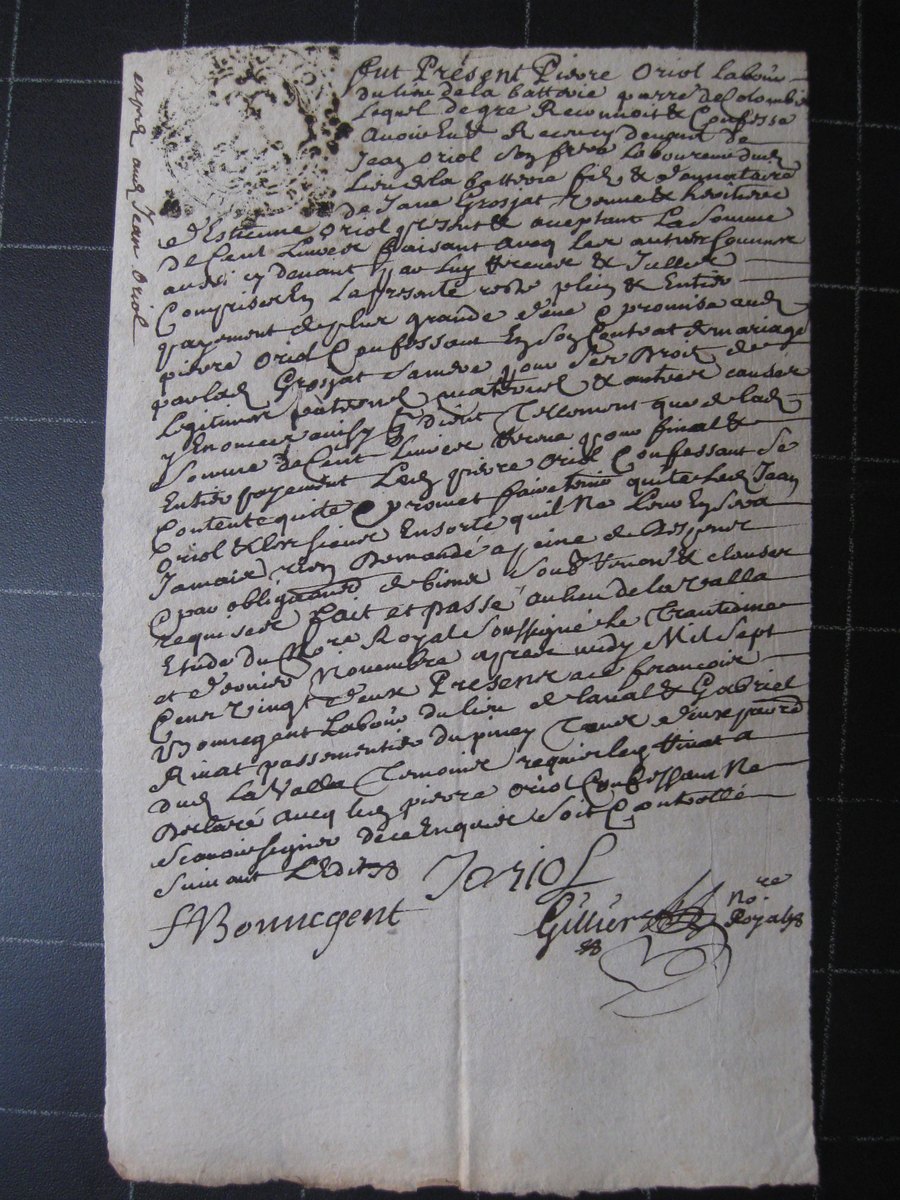 expédié aud Jean Oriol
fut Présent Pierre Oriol Labour
du lieu de la batterie parre de Colombie
Lequel de gre Reconnoit & Confesse
avoir Eu & Receu cy devant de
Jean Oriol son frere Laboureur dud
Lieu de la batterie fils & donnataire
de Jane Grosjat vefve & heritiere
d'Estienne Oriol present & aceptant La Somme
de Cent Livres faisant avec les autres sommes
aussi cy devant par Luy &
Comprises En La presente reste plein & Entier
payement de plus grande promise aud
pierre Oriol Confessant En son Contrat de mariage
par lad Grosjat sa mere pour ses Droit de
Legitimes paternel maternel & autres causes
y Enoncees ainsy qu'ils dient Tellement que de lad
Somme de Cent Livres pour final &
Entier payement Led pierre Oriol Confessant se
Contente quitte & promet faire tenir quitte led Jean
Oriol & les siens Ensorte quil Ne Leur En sera
Jamais rien Demandé a peine de Despens
& par obligaõn de biens Soub & clauses
requises fait et passé au lieu de La Valla
Etude du No.re Royal Soussigné Le Trantieme
et dernier Novembre apres midy Mil Sept
Cens Vingt deux Presens sieur francois
Bonnegent Labour du lieu de Laval & Gabriel
Rivat passementier du pinay Tous deux parre
dud La Valla Temoins requis led Rivat a
Declaré avec led pierre Oriol Confessant Ne
Scavoir signer de ce Enquis Soit Controllé
Suivant L'Edit
Joriol
f Bonnegent
Gillier
No.re
Royal